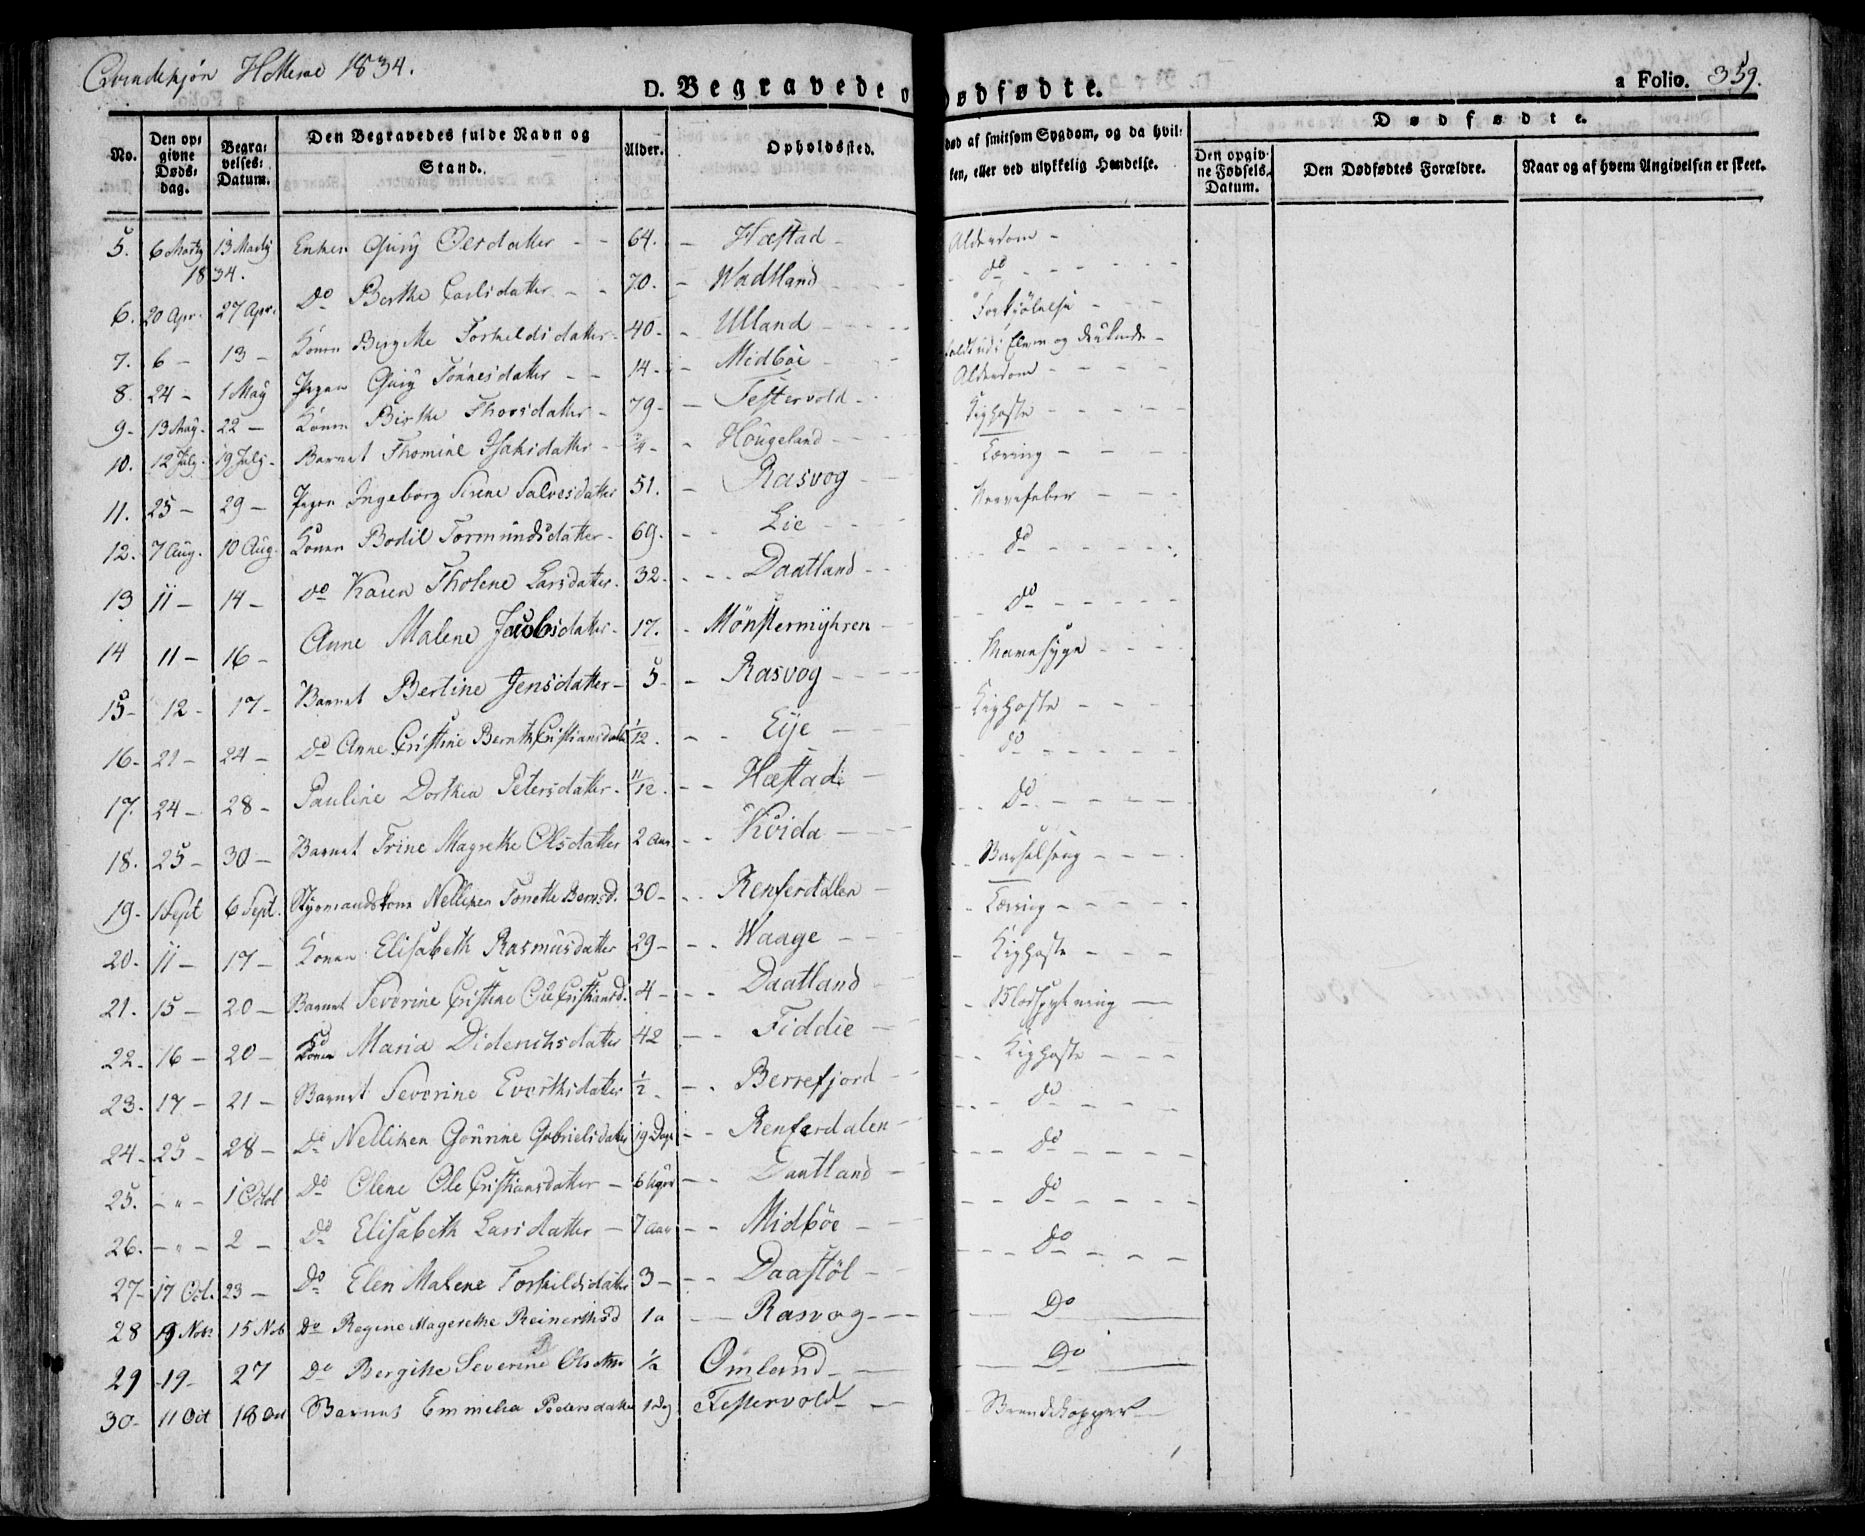 Qvindekjøn Hitterøe 1834.
D. Begravede o
ødfødte.
a Folio. 359.
No.
Den opgivne Dødsdag.
Begravelses-Datum.
Den Begravedes fulde Navn og Stand.
Alder.
Opholdssted.
død af smitsom Sygdom, og da hvilken, eller ved ulykkelig Hændelse.
Dødfødte.
Den opgivne Fødsels-Datum.
Den Dødfødtes Forældre.
Naar og af hvem Angivelsen er skeet.
5. 6 Martz 13 Martz 1834. Enken Gury Olesdatter - - 64. - Hæstad - Alderdom -
6. 20 Apr. 27 Apr. Do Berthe Carlsdatter - - 70. - Wadtland - Do - - -
7. 6 - 13 - Konen Birgitte Torkeldsdatter - 40 - Ulland - Forkjølelse -
8. 24 - 1 May Pigen Gury Tönnesdatter - - 14 - Midböe - Elven og druknede -
9 - 13 May. 22 - Konen Birthe Thorsdatter - 79 - Testervold - Alderdom - - -
10. 12 July. 19 July - Barnet Thomine Isaksdatter - Hougeland - Kighoste - - -
11. 25 - 29 - Pigen Ingeborg Sirene Salvesdatter 51. - Rasvog - Tæring - - -
12. 7 Aug. 10 Aug. Konen Bodil Tormundsdatter - 69. - Lie - Nervefeber - - -
13 11 - 14 - Do Karen Tholene Larsdatter - 32 - Daatland - - Do - - -
14 11 - 16 - Anne Malene Jacobsdatter - 17. - Mönstermyhren - Do - - -
15 - 12 - 17 - Barnet Bertine Jensdatter - 5 - Rasvog - Mavesyge - - -
16 - 21 - 24 - Do Anne Cristine Bernth Cristiansdatter 1/12. - Eije - Kighoste - - -
17. 24 - 28 - Pauline Dorthea Petersdatter - 11/12. - Hæstad - Do - - -
18. 25 - 30 - Barnet Trine Magrethe Olsdatter 2 Aar - Kvida - Do - - -
19 - 1 Sept 6 Sept. Styrmandskone Nelliken Tonette Bernsd. 30 - Renferdalen - Barselseng - - -
20. 11 - 17 - Konen Elisabeth Rasmusdatter 29 - Waage - Tæring - - -
21. 15 - 20 - Barnet Severine Cristine Ole Cristiansd. 4 - Daatland - Kighoste - - -
22. 16 - 20 - Konen Maria Didericksdatter 42 - Fiddie - Blodspytning -
23. 17 - 21 - Barnet Severine Evertsdatter 1/2 - Berrefjord - Kighoste - - -
24 - 25 - 28 - Do Nelliken Gourine Gabrielsdatter 19 Dage - Renferdalen - Do - - -
25. - " - 1 Octob Do Olene Ole Cristiansdatter - 6 Uger - Daatland - Do - - -
26. - " - 2 - Do Elisabeth Larsdatter - 7 Aar - Midböe - Do - - -
27 - 17 Oct. 23 - Do Elen Malene Torkildsdatter 3 - Daastöl - Do - - -
28 9 Nov. 15 Nov Do Regine Magerethe Reinertsd 1 a - Rasvog - Do
29 - 19 - 27 Do Bergitte Severine Olsdtter 1/2 Omland - Do
30 - 11 Oct 18 Oct Barnet Emmelia Pedersdatter 1 Dg Testervold - Brændekopper